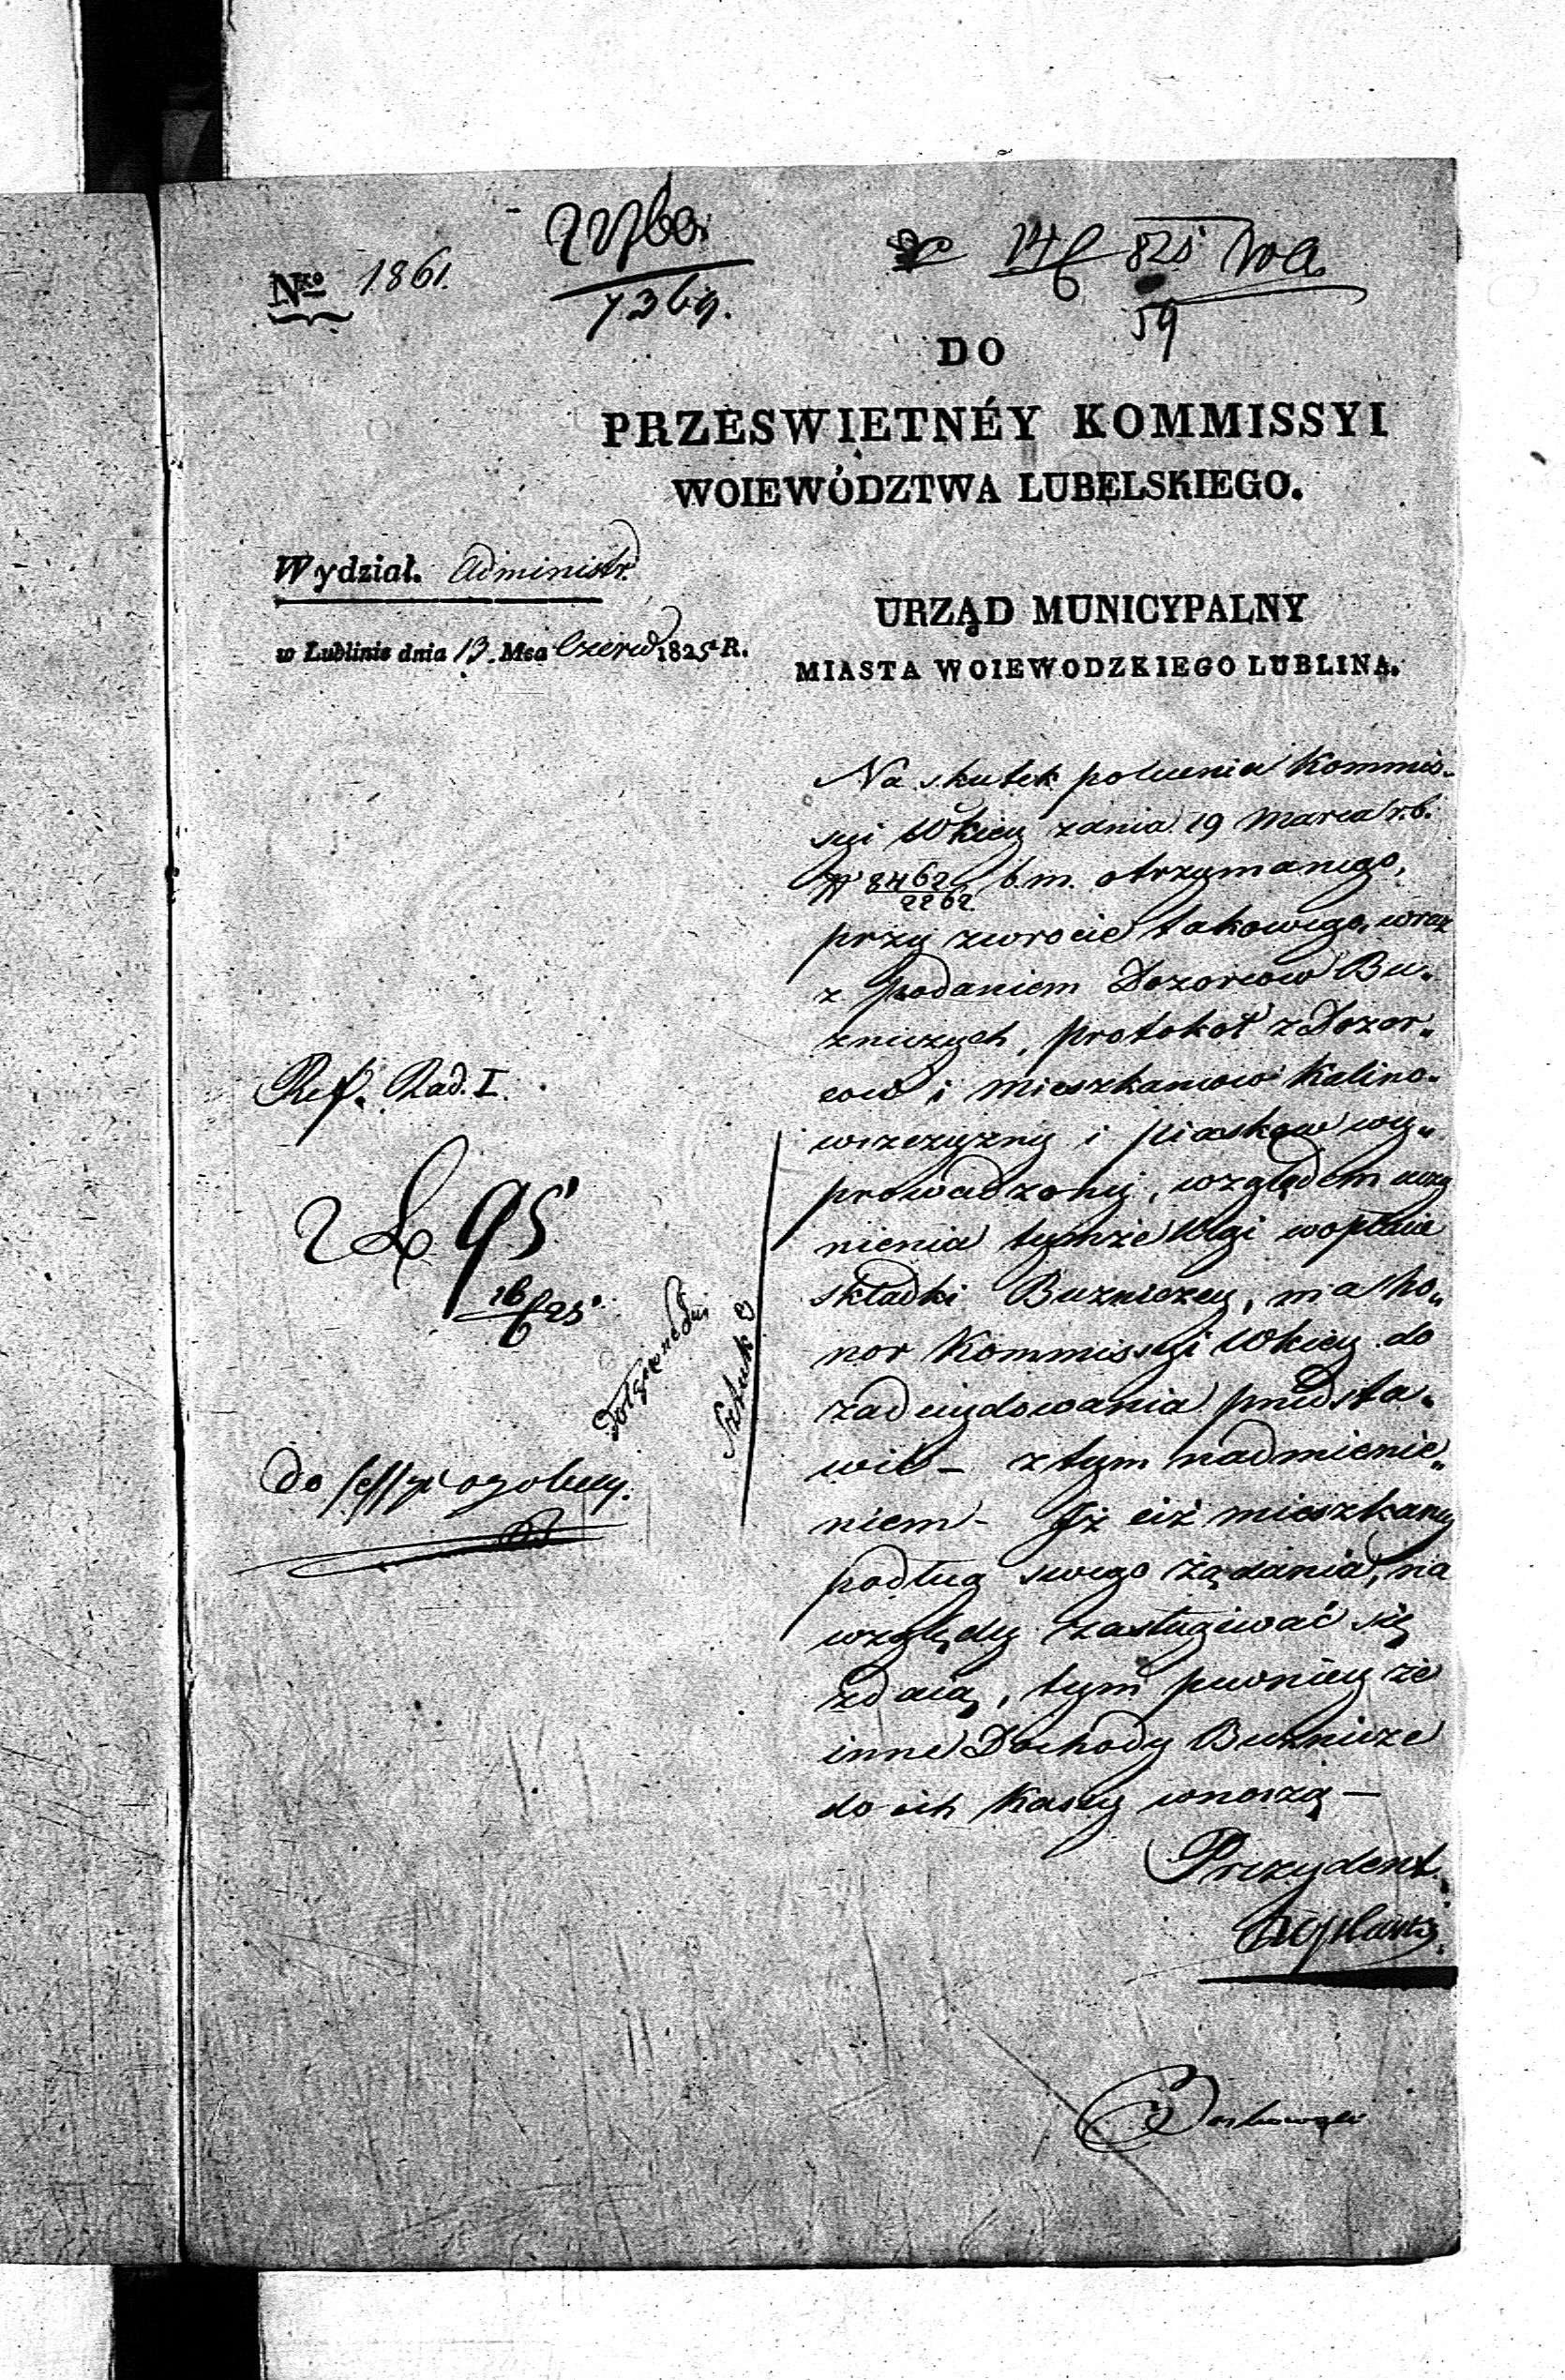 Nro 1861.
7369.
14/6 825
59
DO
PRZESWIĘTNÉY KOMMISSYI
WOIEWÓDZTWA LUBELSKIEGO.
Wydział. Administr.
w Lublinie dnia 13. Msa Czerwca 1825 R.
URZĄD MUNICYPALNY
MIASTA WOIEWODZKIEGO LUBLINA.
Na skutek polecenia Kommis„
syi Wkiey z dnia 19 Marca r. b.
N 8462/2262 b. m. otrzymanego,
przy zwrocie takowego, wraz
z podaniem Dozorcow Bu„
zniczych, protokoł z Dozor„
cow i Mieszkancow Kalino„
wszczyzny i Piaskow wy„
prowadzony, względem uczy
nienia tymże Ulgi w opłacie
składki Bużniczey, ma ho„
nor Kommissyi Wkiey do
zadecydowania przedsta„
wić – z tym nadmienie„
niem – Iż ciż mieszkancy
podług swego żądania, na
względy zasługiwać się
zdaią, tym pewniey że
inne Dochody Buznicze
do ich Kassy wnoszą –
Prezydent
Ref. Rad. I.
95
16/6 25
Sztuk 3
do sessyi ogolney.